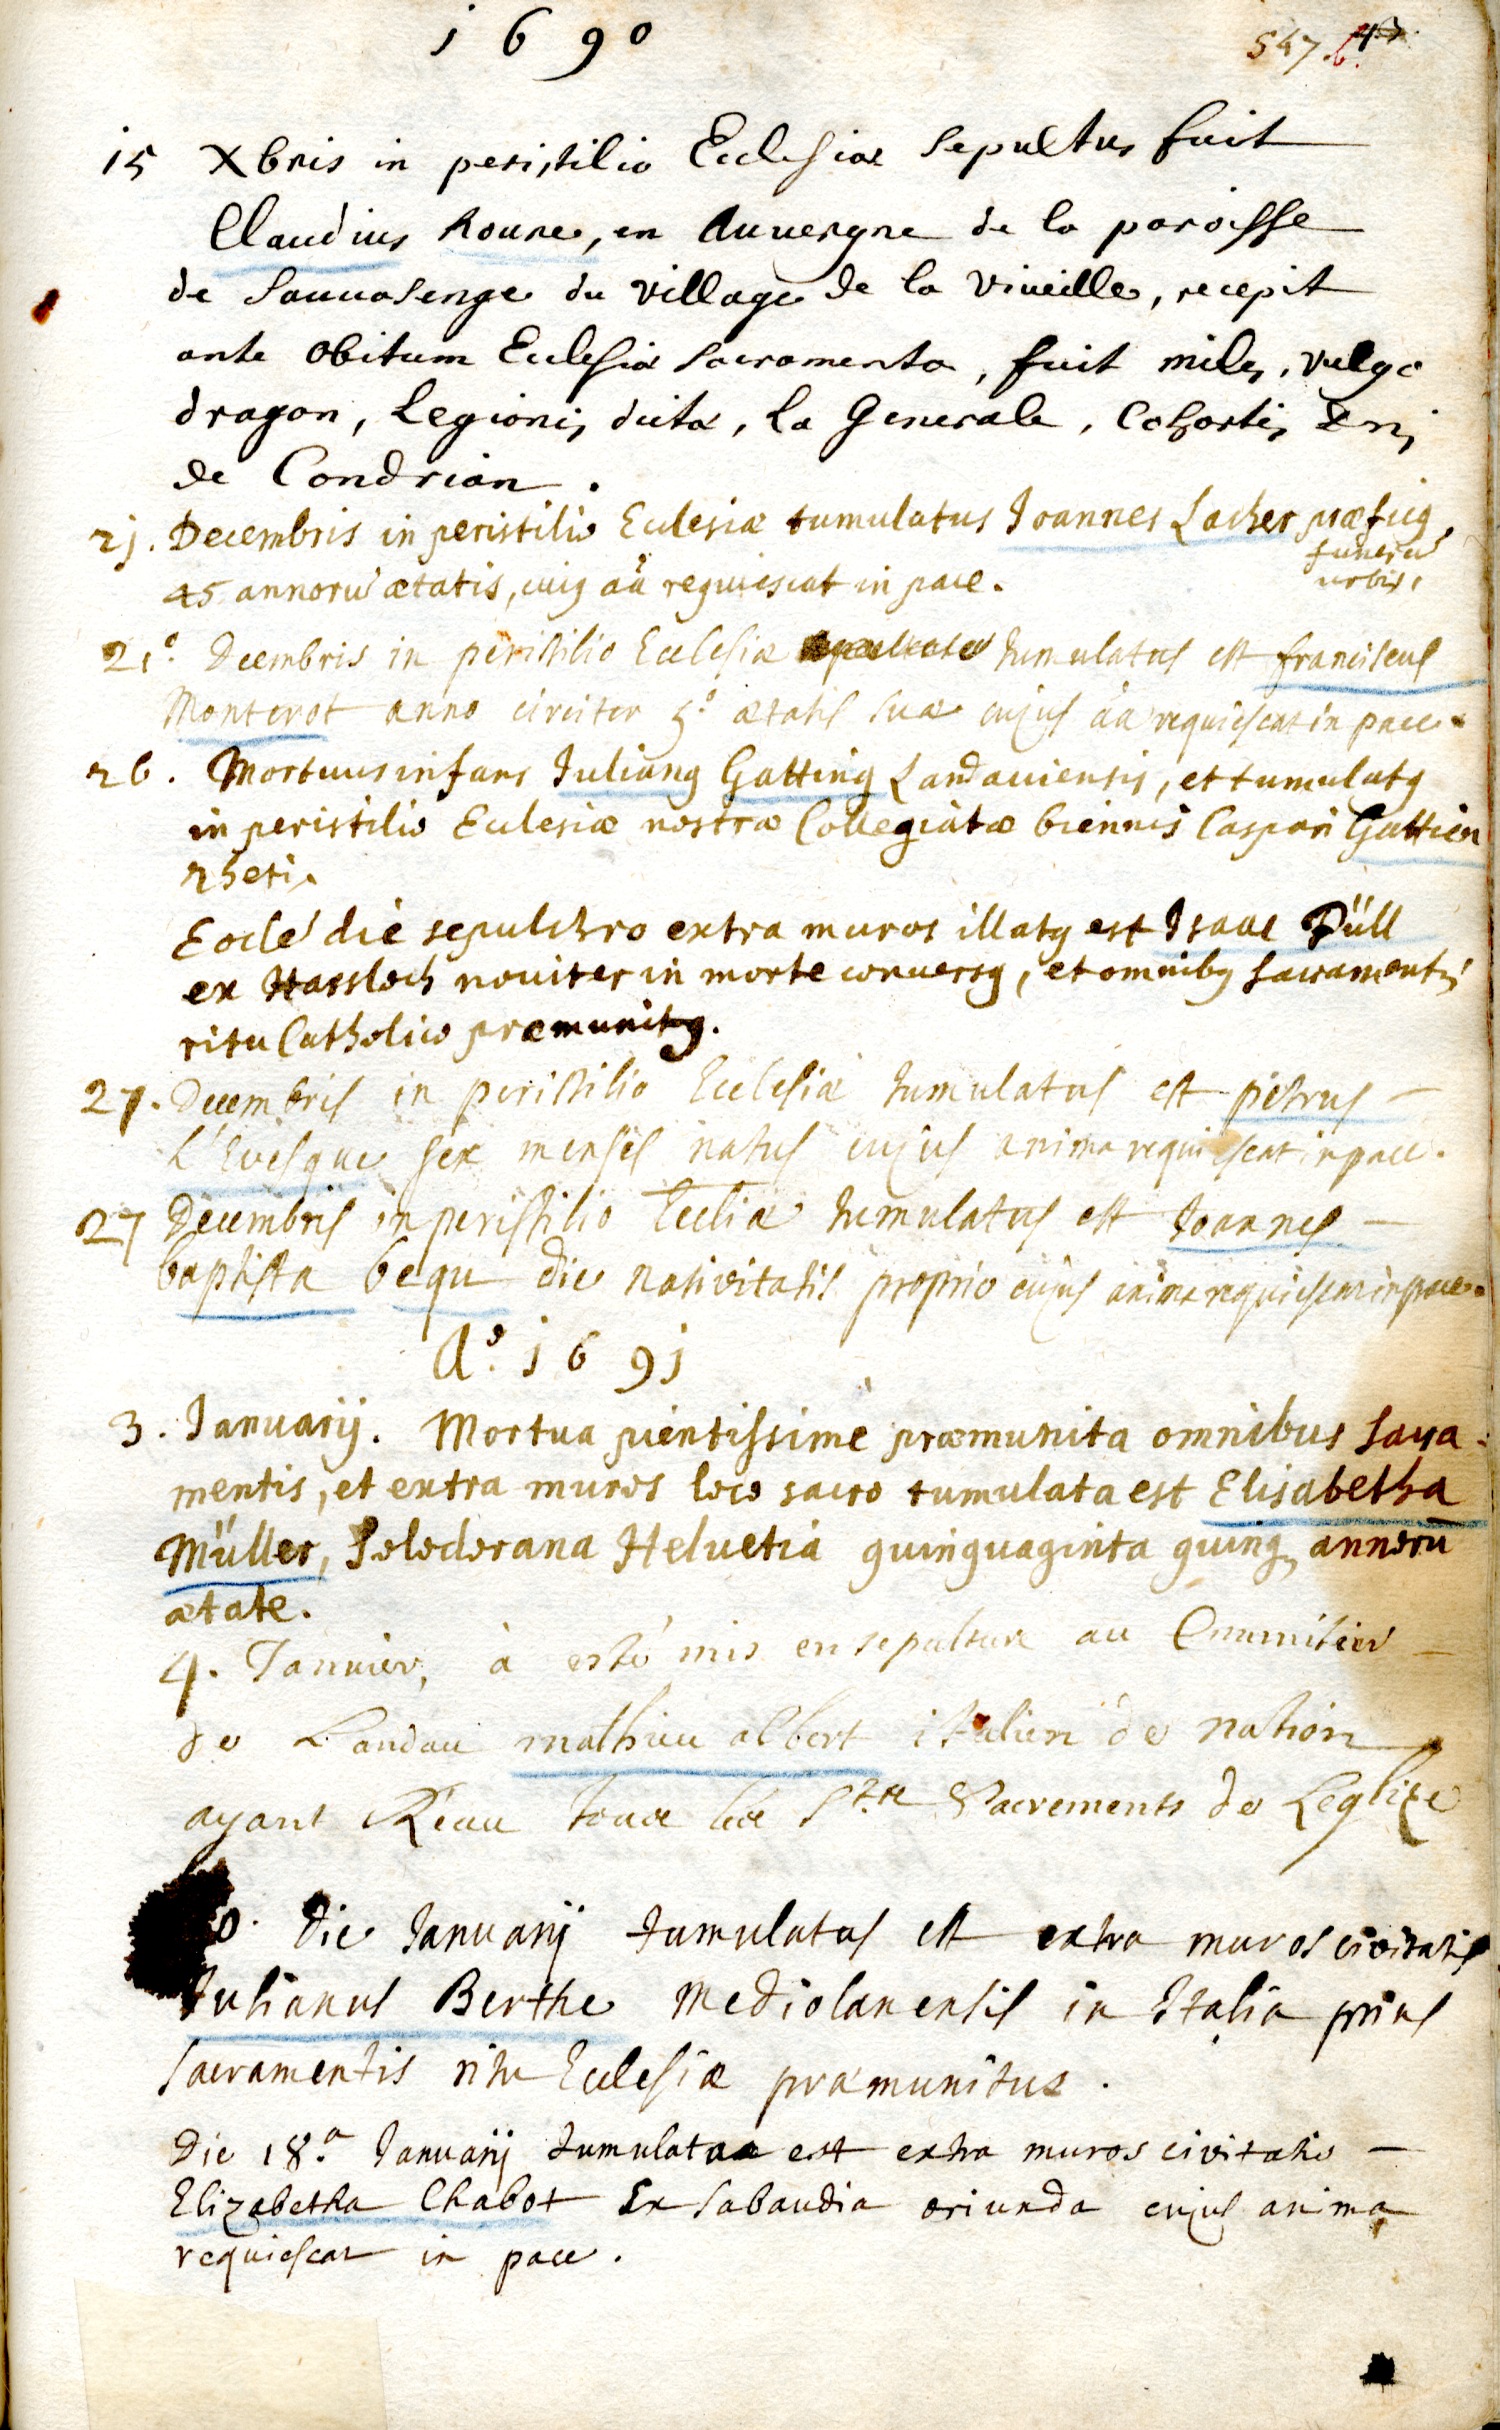 1690
547.
15 Xbris in peristilio Ecclesiæ sepultus fuit
Claudius Roure, en Auuergne de la paroisse
de Sauuasenge du village de la Vineille, recepit
ante obitum Ecclesiæ sacramenta, fuit miles, vulgo
dragon, Legionis dictæ, la Generale, Cohortis Dni
de Condrian.
21. Decembris in peristilio Eclesiæ tumulatus Joannes Locher præfic9
funerū
urbis,
45 annorū ætatis, cui9 aā requiescat in pace.
21.° Decembris in peristilio Ecclesiæ tumulatus est franciscus
Monterot anno circiter 5.° ætatis suæ cujus aā requiescat in pace.
26. Mortuus infans Julian9 Gatting Landauiensis, et tumulat9
in peristilio Eclesiæ nostræ Collegiatæ biennis Caspari Gattien
rheti.
Eodē die sepulchro extra muros illat9 est Isaac Püll
ex Hassloch nouiter in morte conuers9, et omnib9 sacramentis
ritu Catholico præmunit9.
27. Decembris in peristilio Ecclesiæ tumulatus est petrus
L'Evesque sex menses natus cujus anima requiescat in pace.
27 Decembris in peristilio Eccliæ tumulatus est Joannes
baptista bequ die nativitatis proprio cujus anima requiescat in pace.
A.° 1691
3. Januarij. Mortua pientissime præmunita omnibus sacra-
mentis, et extra muros loco sacro tumulata est Elisabetha
Müller, Solodorana Helvetiâ quinquaginta quinq annorū
ætate.
4. Januier, à esté mis en sepulture au Cimmitier
de Landau mathieu albert italien de nation
ayant Réceu tous les Sts Sacrements de Leglize
Die Januarij tumulatus est extra muros civitatis
Julianus Berthe Mediolanensis in Italia prius
sacramentis ritu Ecclesiæ præmunitus.
Die 18.a Januarij tumulata est extra muros civitatis
Elizabetha Chabot Ex Sabaudia oriunda cujus anima
requiescat in pace.